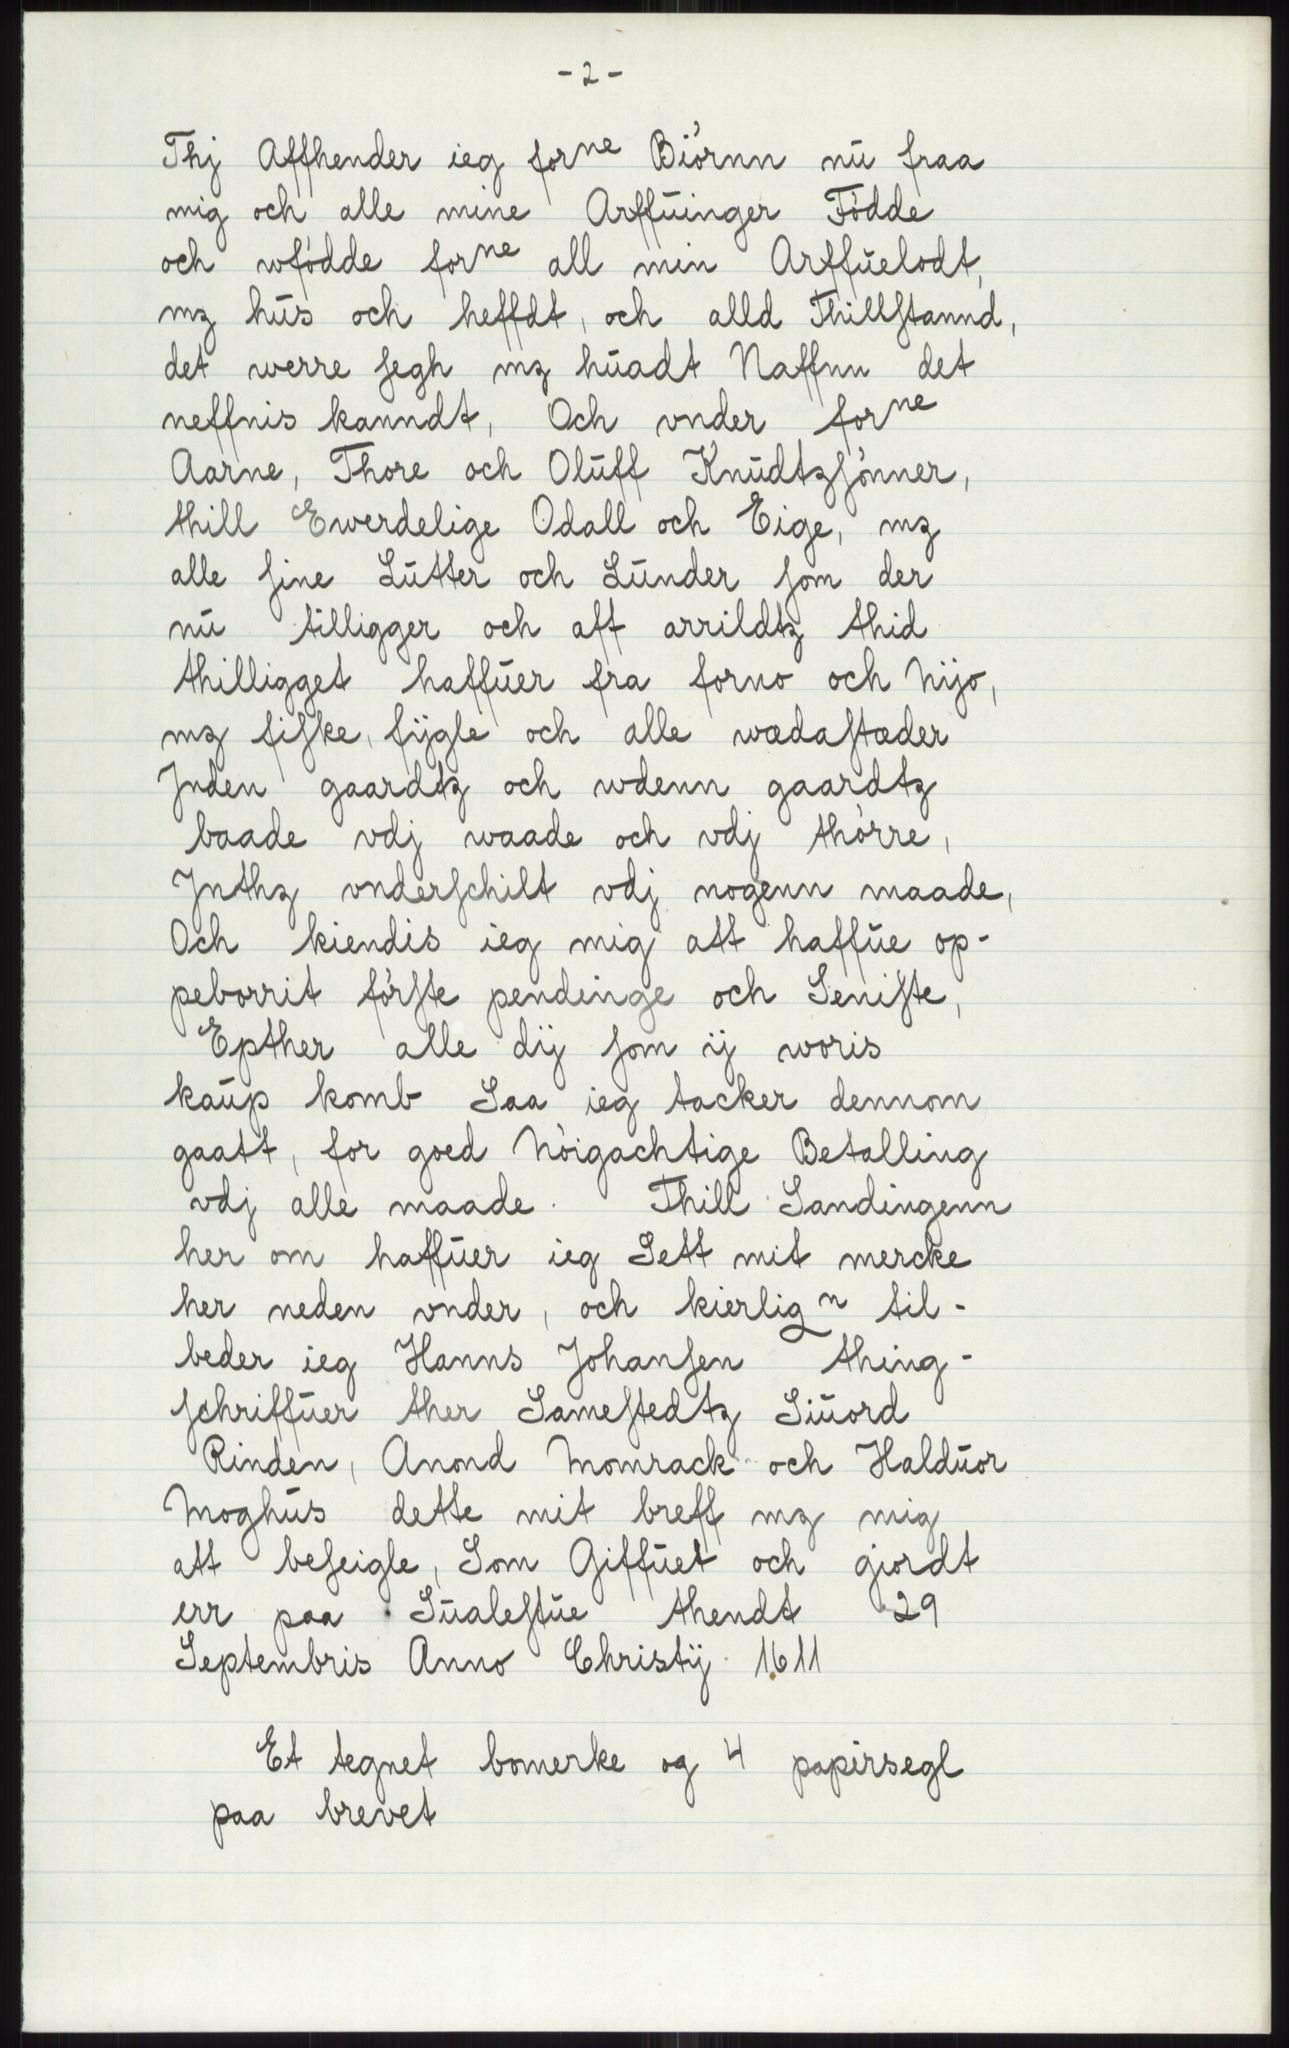 - 2 -
Thj Affhender ieg forne Biörnn nū fraa
mig och alle mine Arffūinger Födde
och wfödde forne all min Arffūelodt,
mz hūs och heffdt, och alld Thillstannd,
det werre segh mz hūadt Naffnn det
neffnis kanndt, Och vnder forne
Aarne, Thore och Olūff Knūdtzsönner,
thill Ewerdelige Odall och Eige, mz
alle sine Lūtter och Lūnder som der
nū tilligger och aff arrildtz thid
thilligget haffūer fra forno och Nijo,
mz fiske, fÿgle och alle wædastæder
Jnden gaardtz och wdenn gaardtz
baade vdj waade och vdj thörre,
Jnthz vnderschilt vdj nogenn maade,
Och kiendis ieg mig att haffūe op-
peborrit förste pendinge och Seniste,
Epther alle dÿ som ÿ woris
kaūp komb Saa ieg tacker dennom
gaatt, for goed Nöigachtige Betalling
vdj alle maade. Thill Sandingenn
her om haffūer ieg Sett mit mercke
her neden vnder, och kierlign til-
beder ieg Hanns Johansen thing-
schriffūer ther Samestedtz Siūord
Rinden, Anond Momrack och Haldūor
Moghūs dette mit breff mz mig
att beseigle, Som Giffūet och giordt
err paa Sūalestūe thendt 29
Septembris Anno Christÿ 1611
Et tegnet bomerke og 4 papirsegl
paa brevet